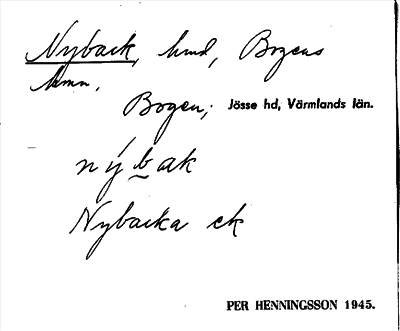 Nyback, hmd, Bogens
kmn,
Bogen, Jösse hd, Värmlands län.
nýbak
Nybacka ek
PER HENNINGSSON 1945.